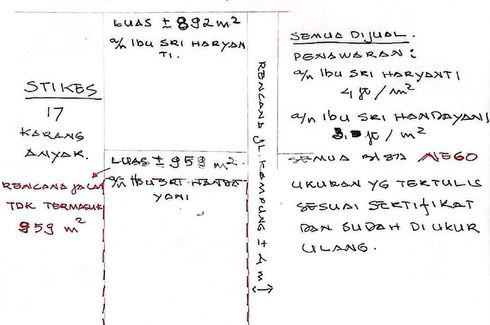 LUAS ± 892 m²
a/n IBU SRI HARYAN
TI.
STIKES
17
KARANG
ANYAR.
LUAS ± 959 m².
a/n IBU SRI HANDA
YANI
RENCANA JALAN
TDK TERMASUK
959 m²
RENCANA JL. KAMPUNG ± 4 m
SEMUA DIJUAL.
PENAWARAN:
a/n IBU SRI HARYANTI
4 jt / m²
a/n IBU SRI HANDAYANI
jt / m²
SEMUA BISA NEGO
UKURAN YG TERTULIS
SESUAI SERTIFIKAT
DAN SUDAH DI UKUR
ULANG.